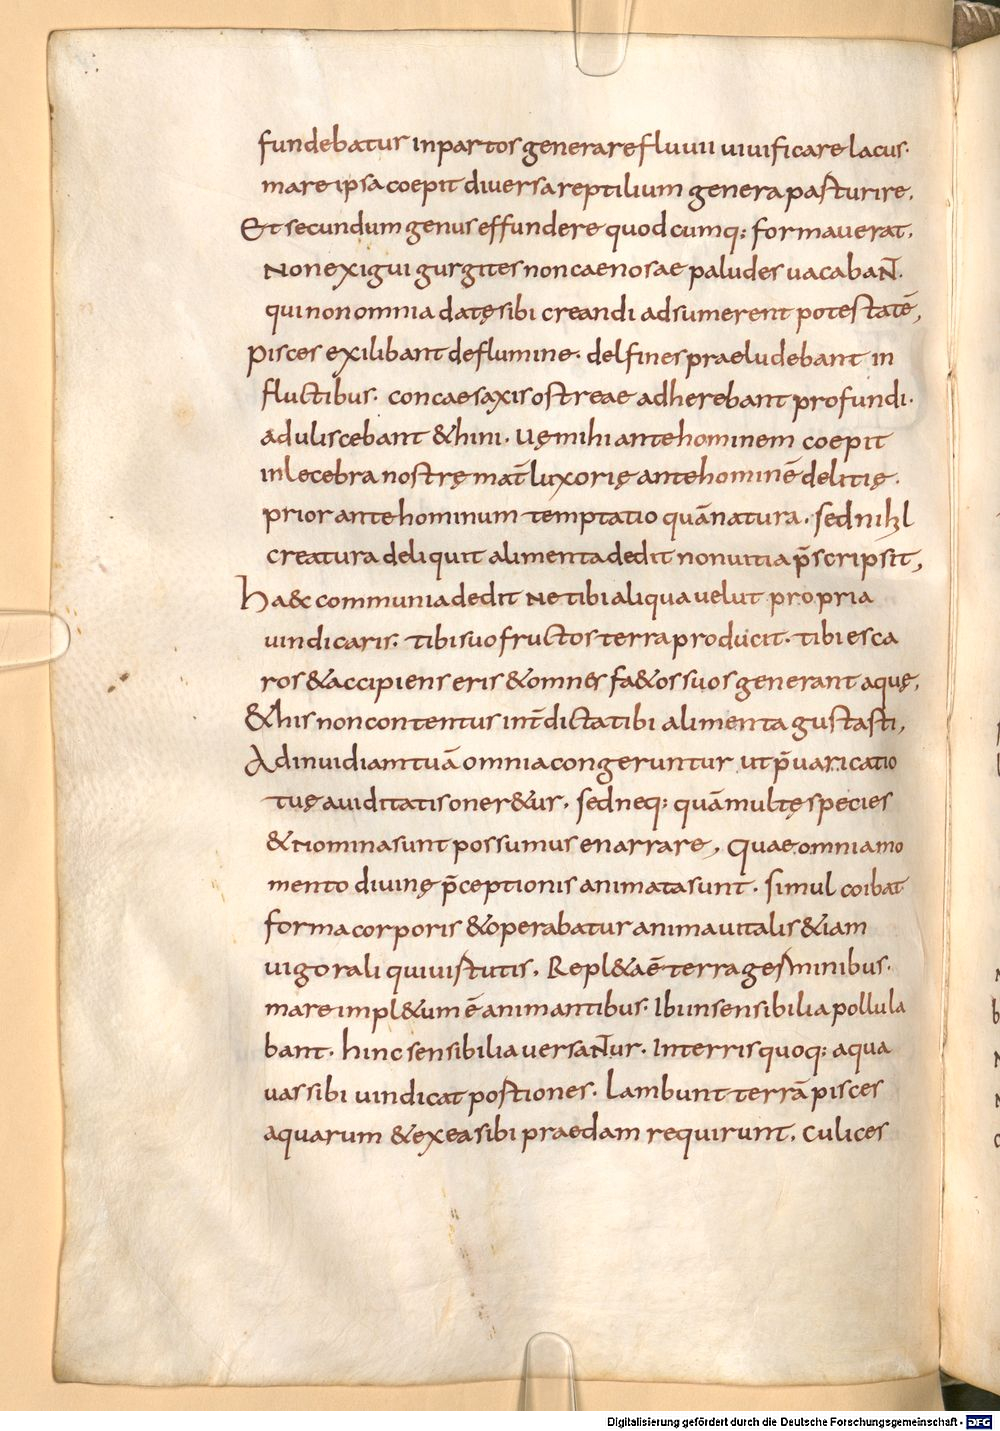 fundebatur inpartos generare fluuii uiuificare lacus·
mare ipsa coepit diuersa reptilium genera parturire.
Et secundum genus effundere quodcumq: formauerat.
Non exigui gurgites non caenosae paludes uacabaN̄.
qui non omnia datę sibi creandi adsumerent potestatē,
pisces exilibant deflumine· delfines praeludebant in
fluctibus· concae saxis ostreae adherebant profundi·
aduliscebant & hini· Uę mihi ante hominem coepit
inlecebra nostrę mat̄ luxorię ante hominē delitię·
prior ante hominum temptatio quā natura. sed nihil
creatura deliquit alimenta dedit non uitia p̄scripsit,
ha&c communia dedit Ne tibi aliqua uelut propria
uindicaris· tibi suo fructos terra producit· tibi esca
ros & accipienseris & omnes fa&os suos generant aquę,
& his non contentus int̄dictatibi alimenta gustasti,
Adinuidiam tuā omnia congeruntur ut p̄uaricatio
tuę auiditatis oner&ur. sed neq: quā multę species
& Nomina sunt possumus enarrare, Quae omnia mo
mento diuinę p̄ceptionis animata sunt· simul coibat
forma corporis & operabatur anima uitalis & iam
uigorali qui uirtutis. Repl&aē terra germinibus·
mare impl&um ē animantibus· Ibi insensibilia pollula
bant· hinc sensibilia uersaN̄ur. Interris quoq: aqua
uas sibi uindicat portiones· Lambunt terrā pisces
aquarum & ex ea sibi praedam requirunt. Culices
Digitalisierung gefördert durch die Deutsche Forschungsgemeinschaft - DFG